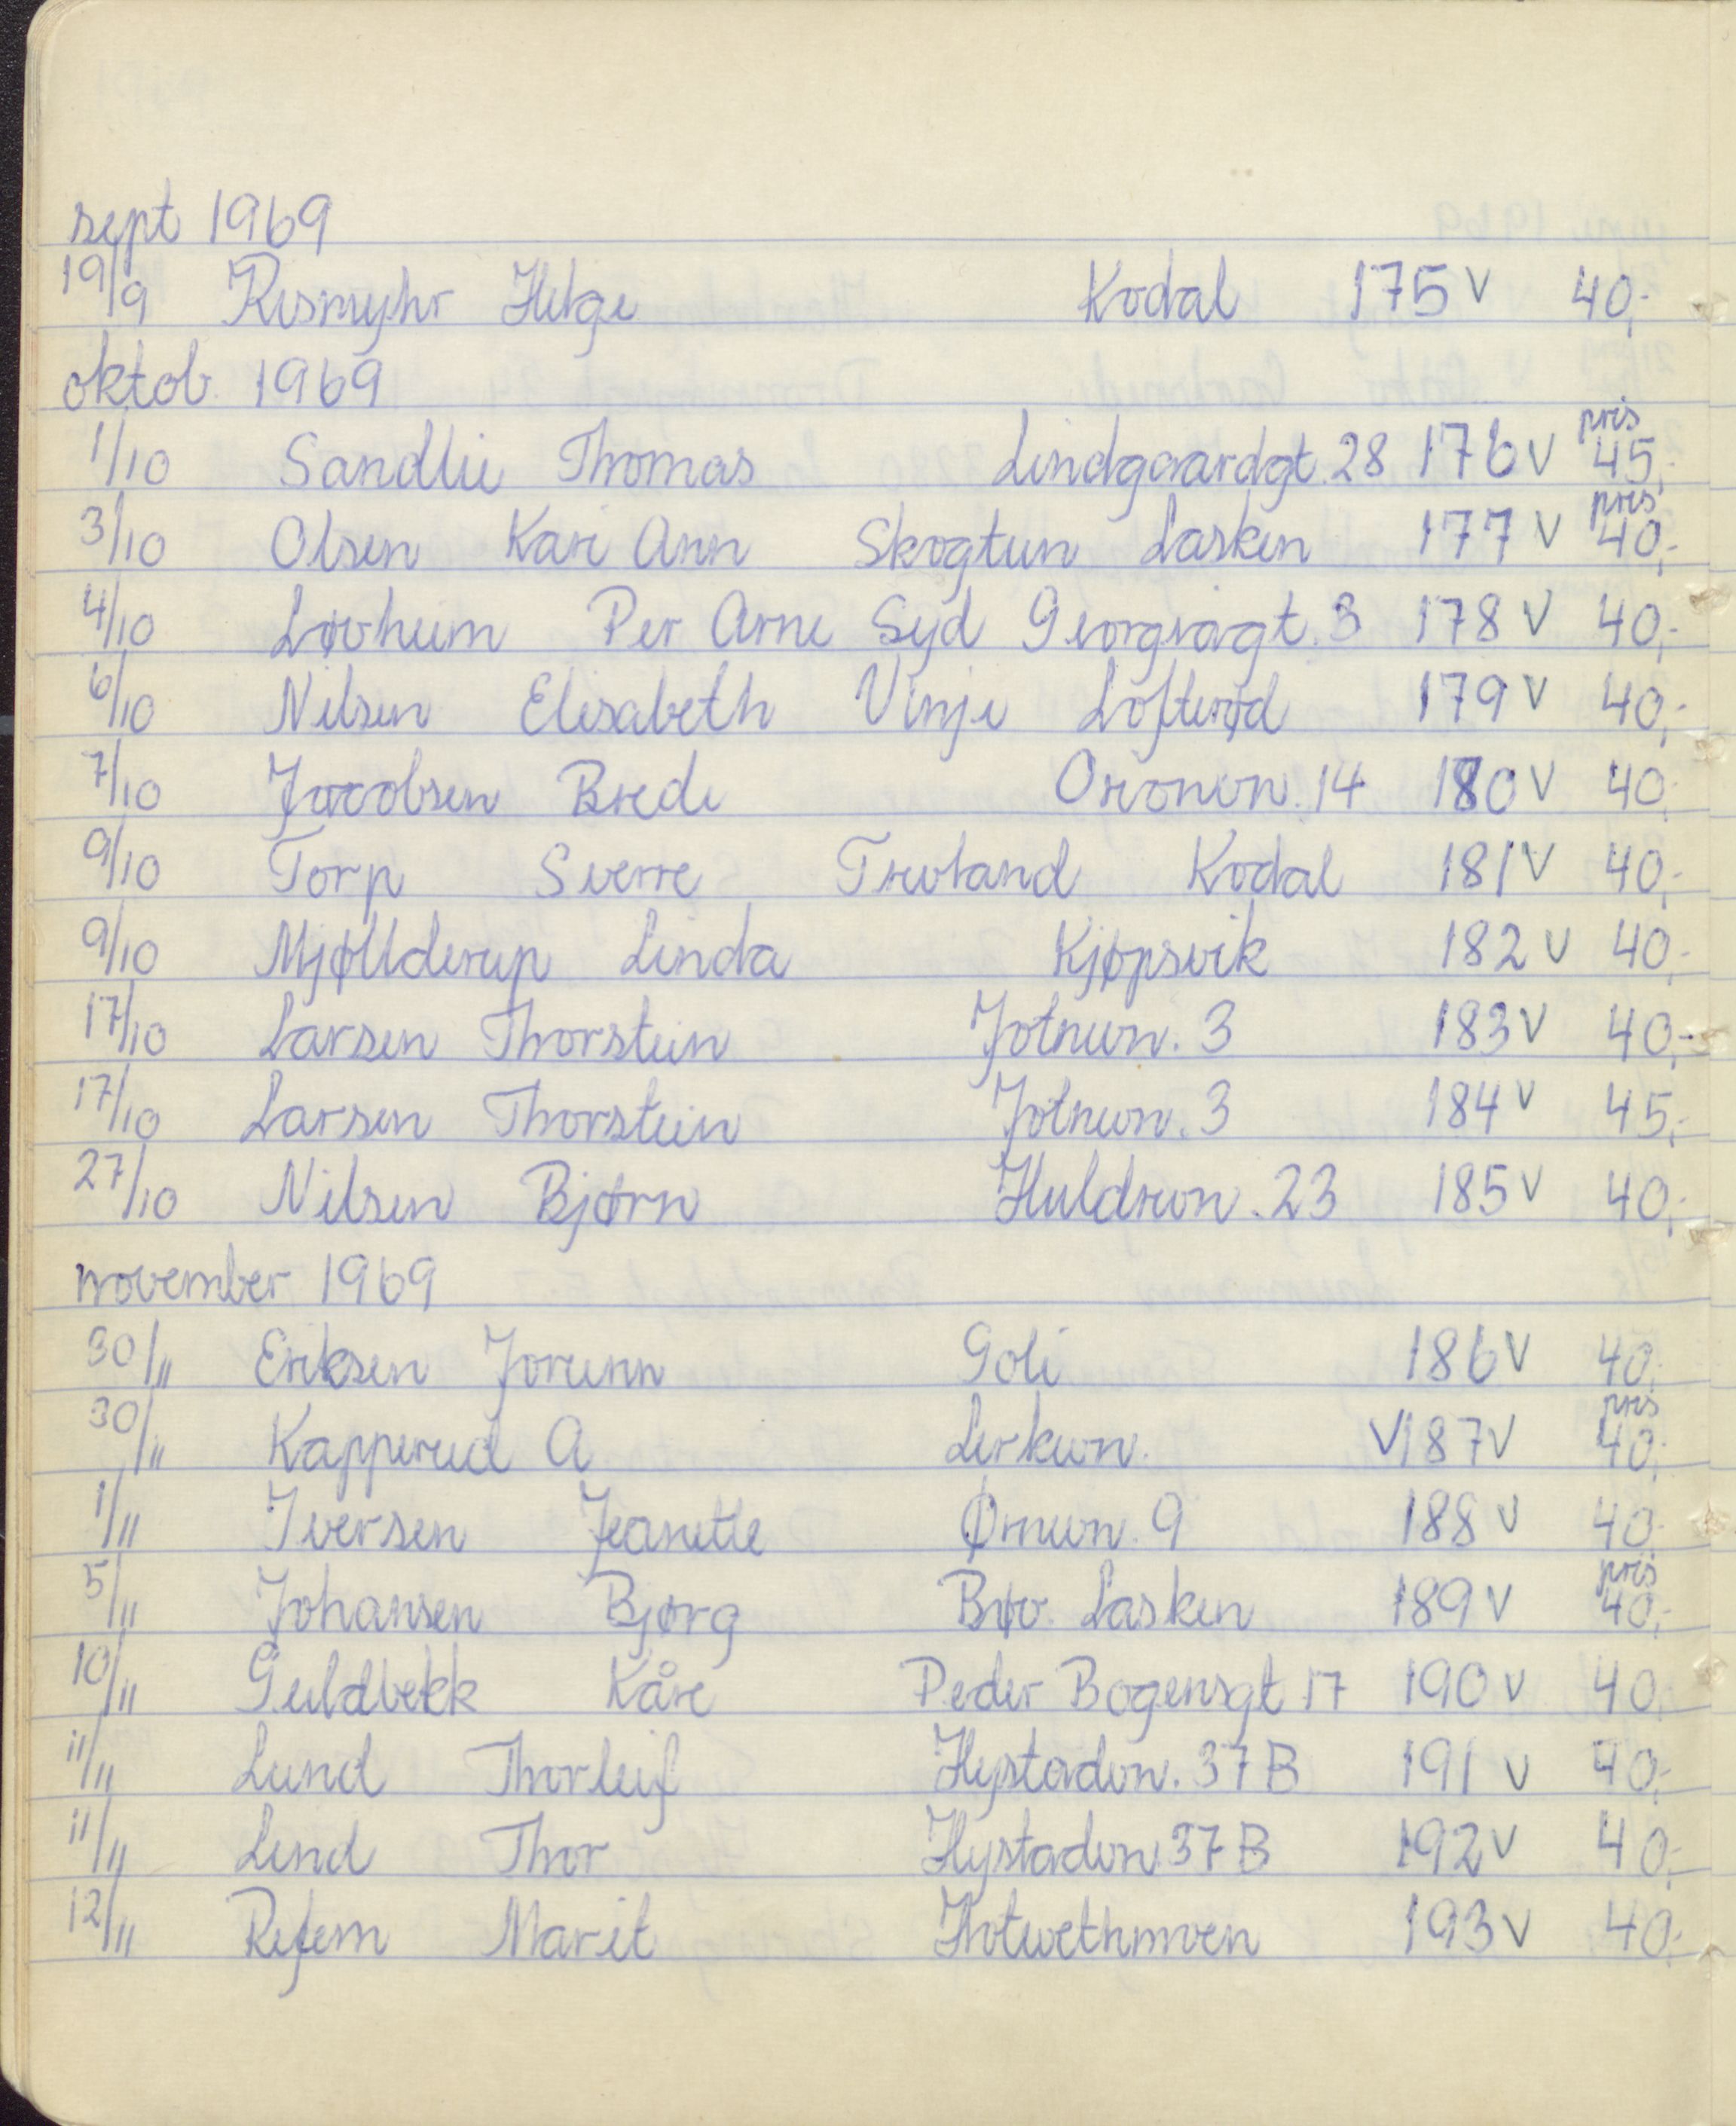 sept 1969
19/9 Rismyhr Helge Kodal 175 V 40,-
oktob. 1969
1/10 Sandlie Thomas Lindgaardgt. 28 176 V pris 45,-
3/10 Olsen Kari Ann Skogtun Lasken 177 V pris 40,-
4/10 Løvheim Per Arne Syd Georgiagt. 3 178 V 40,-
6/10 Nilsen Elisabeth Vinje Løfterød 179 V 40,-
7/10 Jacobsen Brede Orionvn. 14 180 V 40,-
9/10 Torp Sverre Trevland Kodal 181 V 40,-
9/10 Mjøllderup Linda Kjøpsvik 182 V 40,-
17/10 Larsen Thorstein Jotnevn. 3 183 V 40,-
17/10 Larsen Thorstein Jotnevn. 3 184 V 45,-
27/10 Nilsen Bjørn Huldrevn. 23 185 V 40,-
november 1969
30/11 Eriksen Jorunn Goli 186 V 40,-
30/11 Kapperud A Lerkevn. V 187 V pris 40,-
1/11 Iversen Jeanette Ørnevn. 9 188 V 40,-
5/11 Johansen Bjørg Bøv. Lasken 189 V pris 40,-
10/11 Guldbekk Kåre Peder Bogensgt 17 190 V 40,-
11/11 Lund Thorleif Hystadvn. 37 B 191 V 40,-
11/11 Lund Thor Hystadvn 37 B 192 V 40,-
12/11 Refsem Marit 193 V 40,-